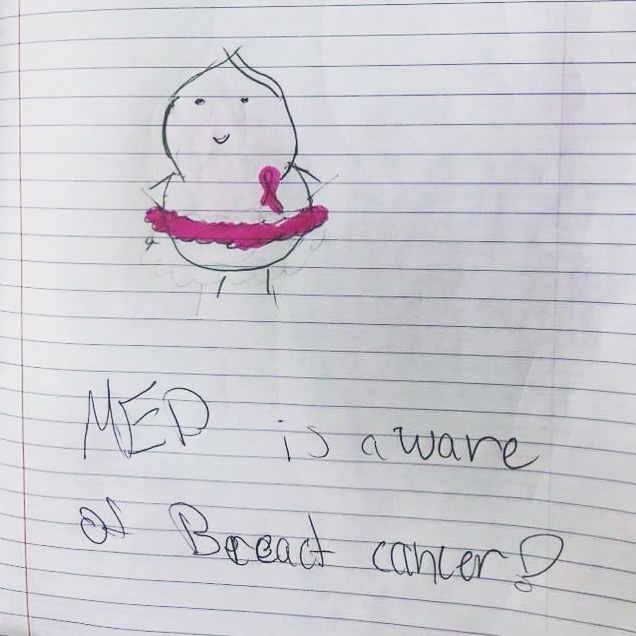 MED is aware
of Breact cancer!